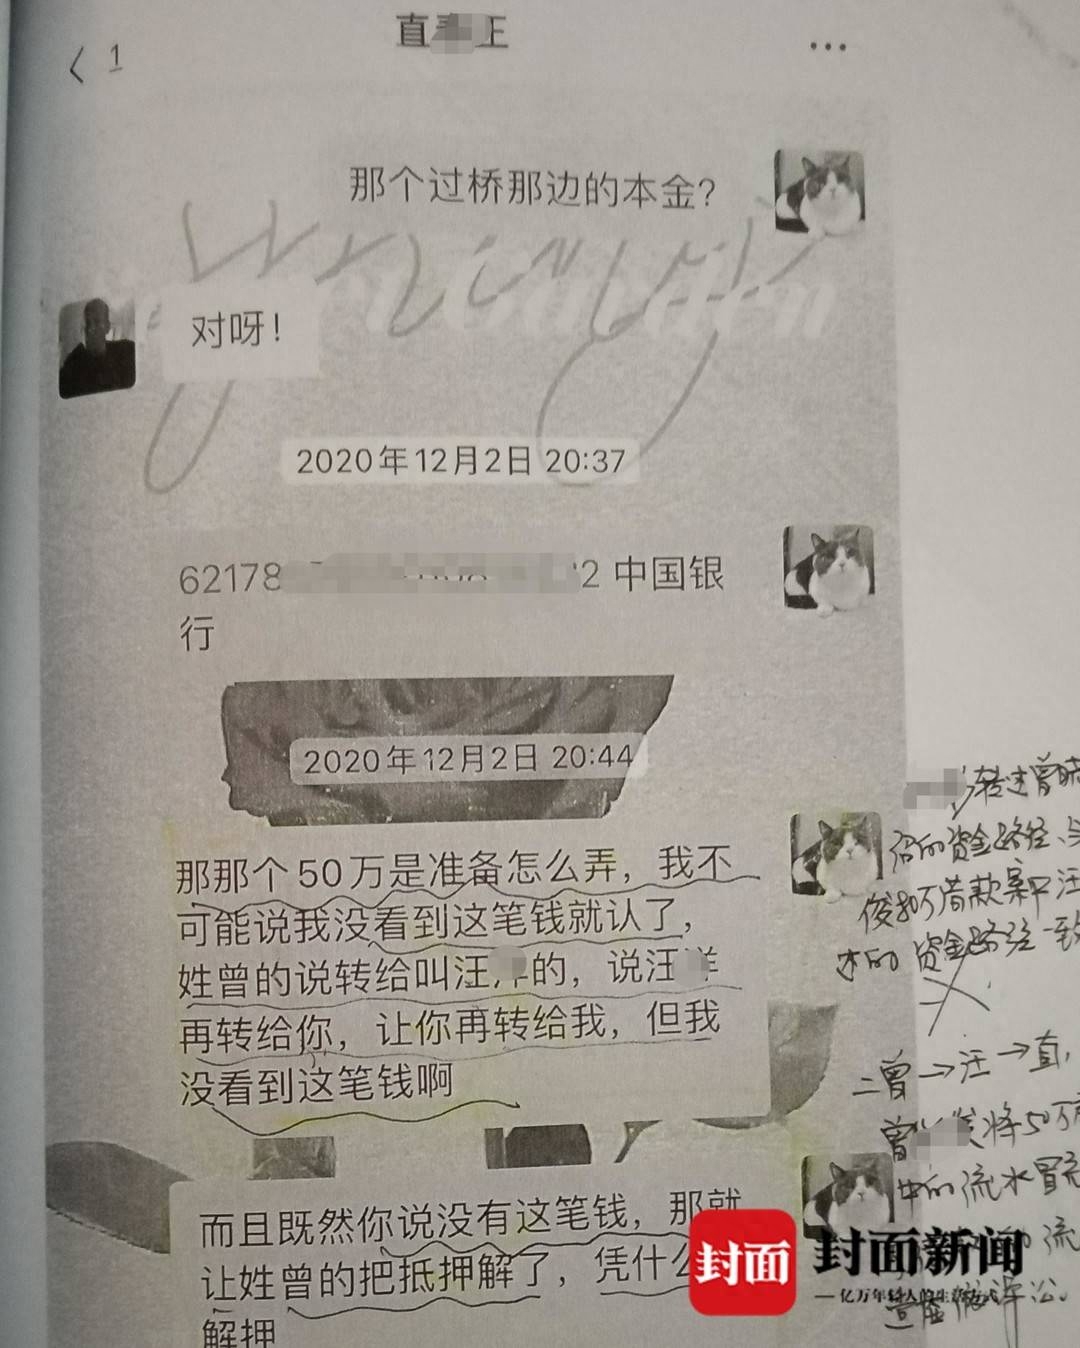 1
直
正
那个过桥那边的本金？
对呀！
2020年12月2日 20:37
62178
2 中国银
行
2020年12月2日 20:44
那那个50万是准备怎么弄，我不
可能说我没看到这笔钱就认了，
姓曾的说转给叫汪洋的，说汪洋
再转给你，让你再转给我，但我
没看到这笔钱啊
而且既然你说没有这笔钱，那就
让姓曾的把抵押解了，凭什么
解押
转过曾
的资金路径、
借款案中汪
的资金路径一致
二曾→汪→直，
将50万
中的流水冒充
封面
封面新闻
亿万年轻人的生活方式